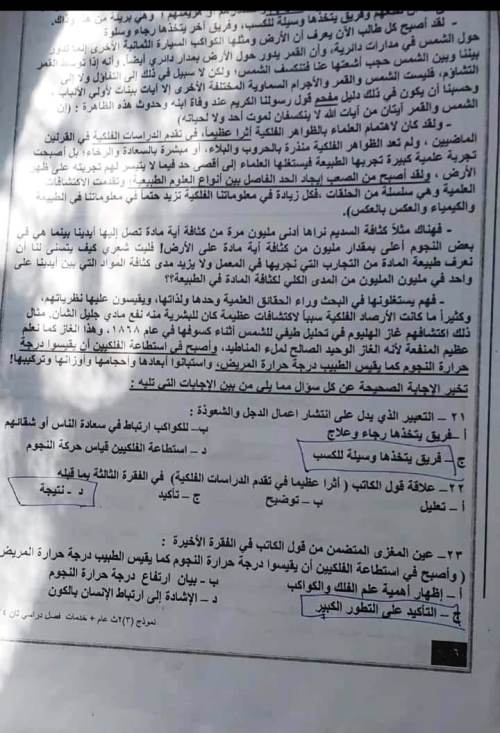 وفريق يتخذها وسيلة للكسب، وفريق آخر يتخذها رجاء وسلوة
- لقد أصبح كل طالب الآن يعرف أن الأرض ومثلها الكواكب السيارة الثمانية الأخرى إنما تدور
حول الشمس في مدارات دائرية، وأن القمر يدور حول الأرض بمدار دائري أيضاً وأنه إذا توسط القمر
بيننا وبين الشمس حجب أشعتها عنا فتنكسف الشمس؛ ولكن لا سبيل في ذلك إلى التفاؤل ولا إلى
التشاؤم، فليست الشمس والقمر والأجرام السماوية المختلفة الأخرى إلا آيات بينات لأولي الألباب،
وحسبنا أن يكون في ذلك دليل مفحم قول رسولنا الكريم عند وفاة ابنه وحدوث هذه الظاهرة : (إن
الشمس والقمر آيتان من آيات الله لا ينكسفان لموت أحد ولا لحياته)
- ولقد كان لاهتمام العلماء بالظواهر الفلكية أثراً عظيماً، في تقدم الدراسات الفلكية في القرنين
الماضيين ، ولم تعد الظواهر الفلكية منذرة بالحروب والبلاء، أو مبشرة بالسعادة والرخاء؛ بل أصبحت
تجربة علمية كبيرة تجربها الطبيعة فيستغلها العلماء إلى أقصى حد فيما لا يتيسر لهم تجربته على ظهر
الأرض ، ولقد أصبح من الصعب إيجاد الحد الفاصل بين أنواع العلوم الطبيعية؛ وتقدمت الاكتشافات
العلمية وهي سلسلة من الحلقات ،فكل زيادة في معلوماتنا الفلكية تزيد حتماً في معلوماتنا في الطبيعة
والكيمياء والعكس بالعكس).
- فهناك مثلاً كثافة السديم نراها أدنى مليون مرة من كثافة أية مادة تصل إليها أيدينا بينما هي في
بعض النجوم أعلى بمقدار مليون من كثافة أية مادة على الأرض! فليت شعري كيف يتسنى لنا إن
نعرف طبيعة المادة من التجارب التي نجريها في المعمل ولا يزيد مدى كثافة المواد التي بين أيدينا على
واحد في مليون المليون من المدى الكلي لكثافة المادة في الطبيعة؟؟
- فهم يستغلونها في البحث وراء الحقائق العلمية وحدها ولذاتها، ويقيسون عليها نظرياتهم،
وكثيراً ما كانت الأرصاد الفلكية سبباً لاكتشافات عظيمة كان للبشرية منه نفع مادي جليل الشأن. مثال
ذلك اكتشافهم غاز الهليوم في تحليل طيفي للشمس أثناء كسوفها في عام ١٨٦٨، وهذا الغاز كما نعلم
عظيم المنفعة لأنه الغاز الوحيد الصالح لملء المناطيد، وأصبح في استطاعة الفلكيين أن يقيسوا درجة
حرارة النجوم كما يقيس الطبيب درجة حرارة المريض، واستبانوا أبعادها وأحجامها وأوزانها وتركيبها!
تخير الإجابة الصحيحة عن كل سؤال مما يلي من بين الإجابات التي تليه :
٢١ – التعبير الذي يدل على انتشار اعمال الدجل والشعوذة :
أ –فريق يتخذها رجاء وعلاج ب– للكواكب ارتباط في سعادة الناس أو شقائهم
ج – فريق يتخذها وسيلة للكسب د – استطاعة الفلكيين قياس حركة النجوم
٢٢– علاقة قول الكاتب ( أثرا عظيما في تقدم الدراسات الفلكية) في الفقرة الثالثة بما قبله
أ – تعليل ب – توضيح ج – تأكيد د – نتيجة
٢٣– عين المغزى المتضمن من قول الكاتب في الفقرة الأخيرة :
( وأصبح في استطاعة الفلكيين أن يقيسوا درجة حرارة النجوم كما يقيس الطبيب درجة حرارة المريض
أ – إظهار أهمية علم الفلك والكواكب ب – بيان ارتفاع درجة حرارة النجوم
ج – التأكيد على التطور الكبير د – الإشادة إلى ارتباط الإنسان بالكون
نموذج (٣)٢ث عام + خدمات فصل دراسي ثان